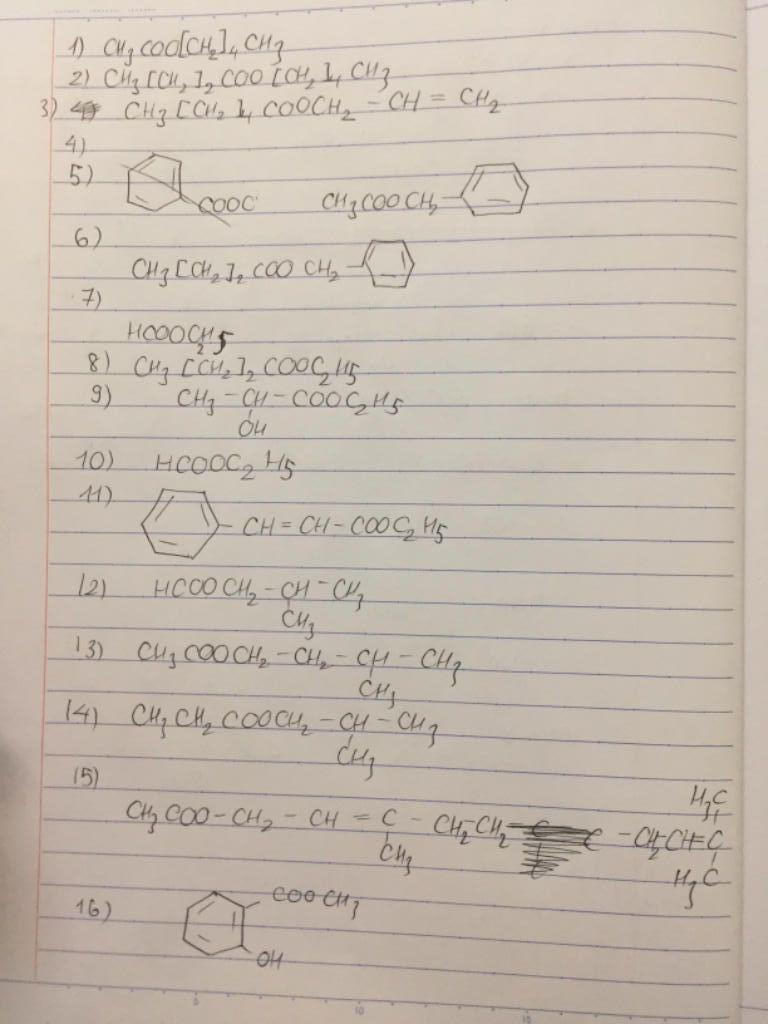 1) CH3COO[CH2]4CH3
2) CH3[CH2]2COO[CH2]4CH3
3) CH3[CH2]4COOCH2-CH=CH2
4)
5) COOC CH3COOCH2-
6)
CH3[CH2]2COOCH2-
7)
HCOOC2H5
8) CH3[CH2]2COOC2H5
9) CH3-CH-COOC2H5
OH
10) HCOOC2H5
11) -CH=CH-COOC2H5
12) HCOOCH2-CH-CH3
CH3
13) CH3COOCH2-CH2-CH-CH3
CH3
14) CH3CH2COOCH2-CH-CH3
CH3
15)
H3C
CH3COO-CH2-CH=C-CH2CH2-CH2CH=C
CH3
H3C
16) COOCH3
OH
0 10 15